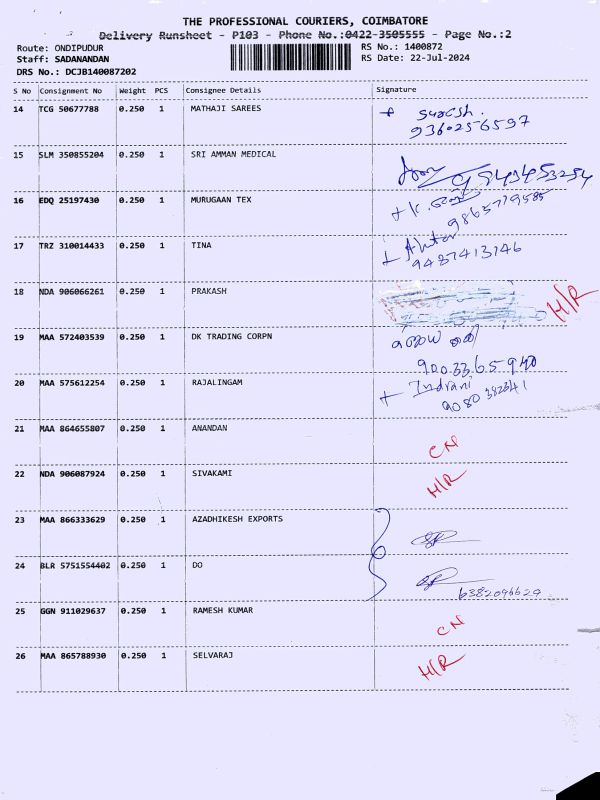 THE PROFESSIONAL COURIERS, COIMBATORE
Delivery Runsheet - P103 - Phone No.:0422-3505555 - Page No.:2
Route: ONDIPUDUR RS No.: 1400872
Staff: SADANANDAN RS Date: 22-Jul-2024
DRS No.: DCJB140087202
S No Consignment No Weight PCS Consignee Details Signature
14 TCG 50677788 0.250 1 MATHAJI SAREES + Suresh.
9360256597
15 SLM 350855204 0.250 1 SRI AMMAN MEDICAL
16 EDQ 25197430 0.250 1 MURUGAAN TEX
9865719585
17 TRZ 310014433 0.250 1 TINA
9487413146
18 NDA 906066261 0.250 1 PRAKASH H/R
19 MAA 572403539 0.250 1 DK TRADING CORPN
9003365940
20 MAA 575612254 0.250 1 RAJALINGAM + Indrani
9080382341
21 MAA 864655807 0.250 1 ANANDAN CN
22 NDA 906087924 0.250 1 SIVAKAMI H/R
23 MAA 866333629 0.250 1 AZADHIKESH EXPORTS
24 BLR 5751554402 0.250 1 DO
6382096629
25 GGN 911029637 0.250 1 RAMESH KUMAR CN
26 MAA 865788930 0.250 1 SELVARAJ H/R